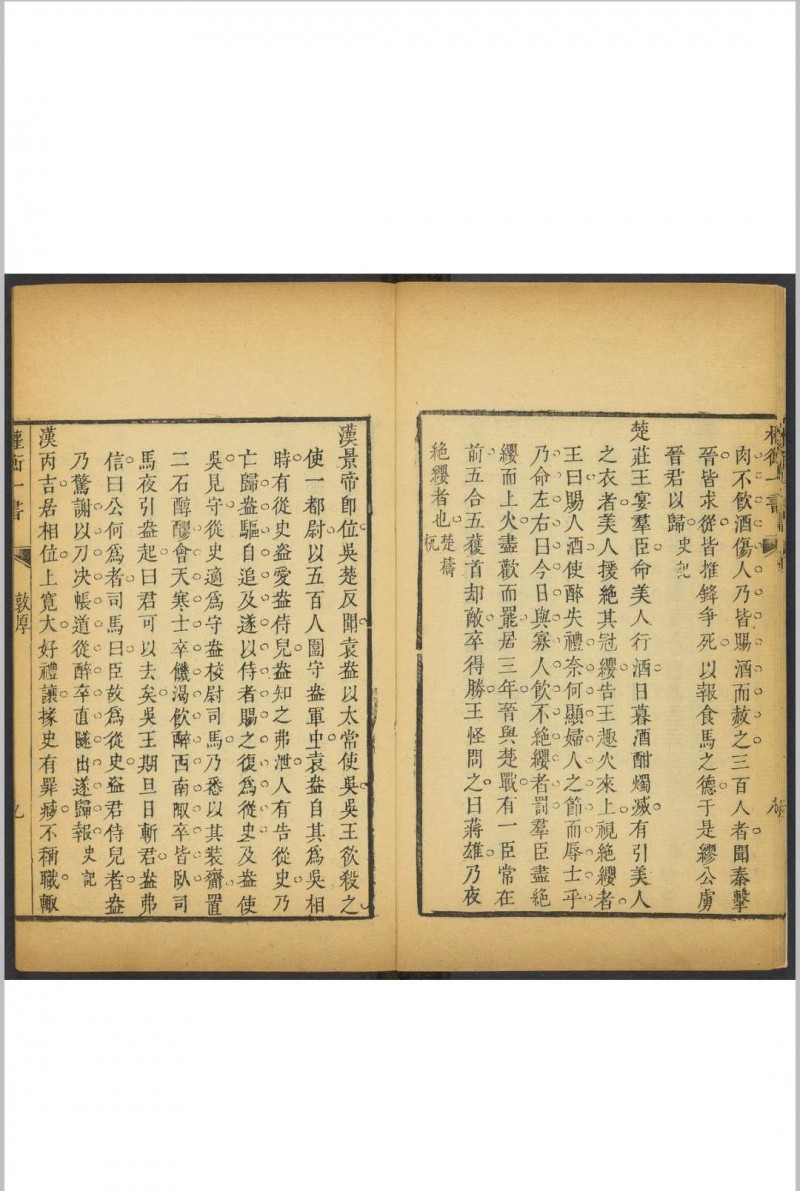 肉不飲酒傷人乃皆賜酒而赦之三百人者聞秦擊
晉皆求從皆推鋒爭死以報食馬之德于是繆公虜
晉君以歸史記
楚莊王宴羣臣命美人行酒日暮酒酣燭滅有引美人
之衣者美人援絕其冠纓告王趣火來上視絕纓者
王曰賜人酒使醉失禮奈何顯婦人之節而辱士乎
乃命左右曰今日與寡人飲不絕纓者罰羣臣盡絕
纓而上火盡歡而罷居三年晉與楚戰有一臣常在
前五合五獲首却敵卒得勝王怪問之曰蔣雄乃夜
絕纓者也楚檮杌
漢景帝卽位吳楚反聞袁盎以太常使吳吳王欲殺之
使一都尉以五百人圍守盎軍中袁盎自其爲吳相
時有從史盜愛盎侍兒盎知之弗泄人有告從史乃
亡歸盎驅自追及遂以侍者賜之復爲從史及盎使
吳見守從史適爲守盎校尉司馬乃悉以其裝齎置
二石醇醪會天寒士卒饑渴飲醉西南陬卒皆臥司
馬夜引盎起曰君可以去矣吳王期旦日斬君盎弗
信曰公何爲者司馬曰臣故爲從史盜君侍兒者盎
乃驚謝以刀决帳道從醉卒直隧出遂歸報史記
漢丙吉居相位上寬大好禮讓掾史有罪臧不稱職輙
敦厚
九